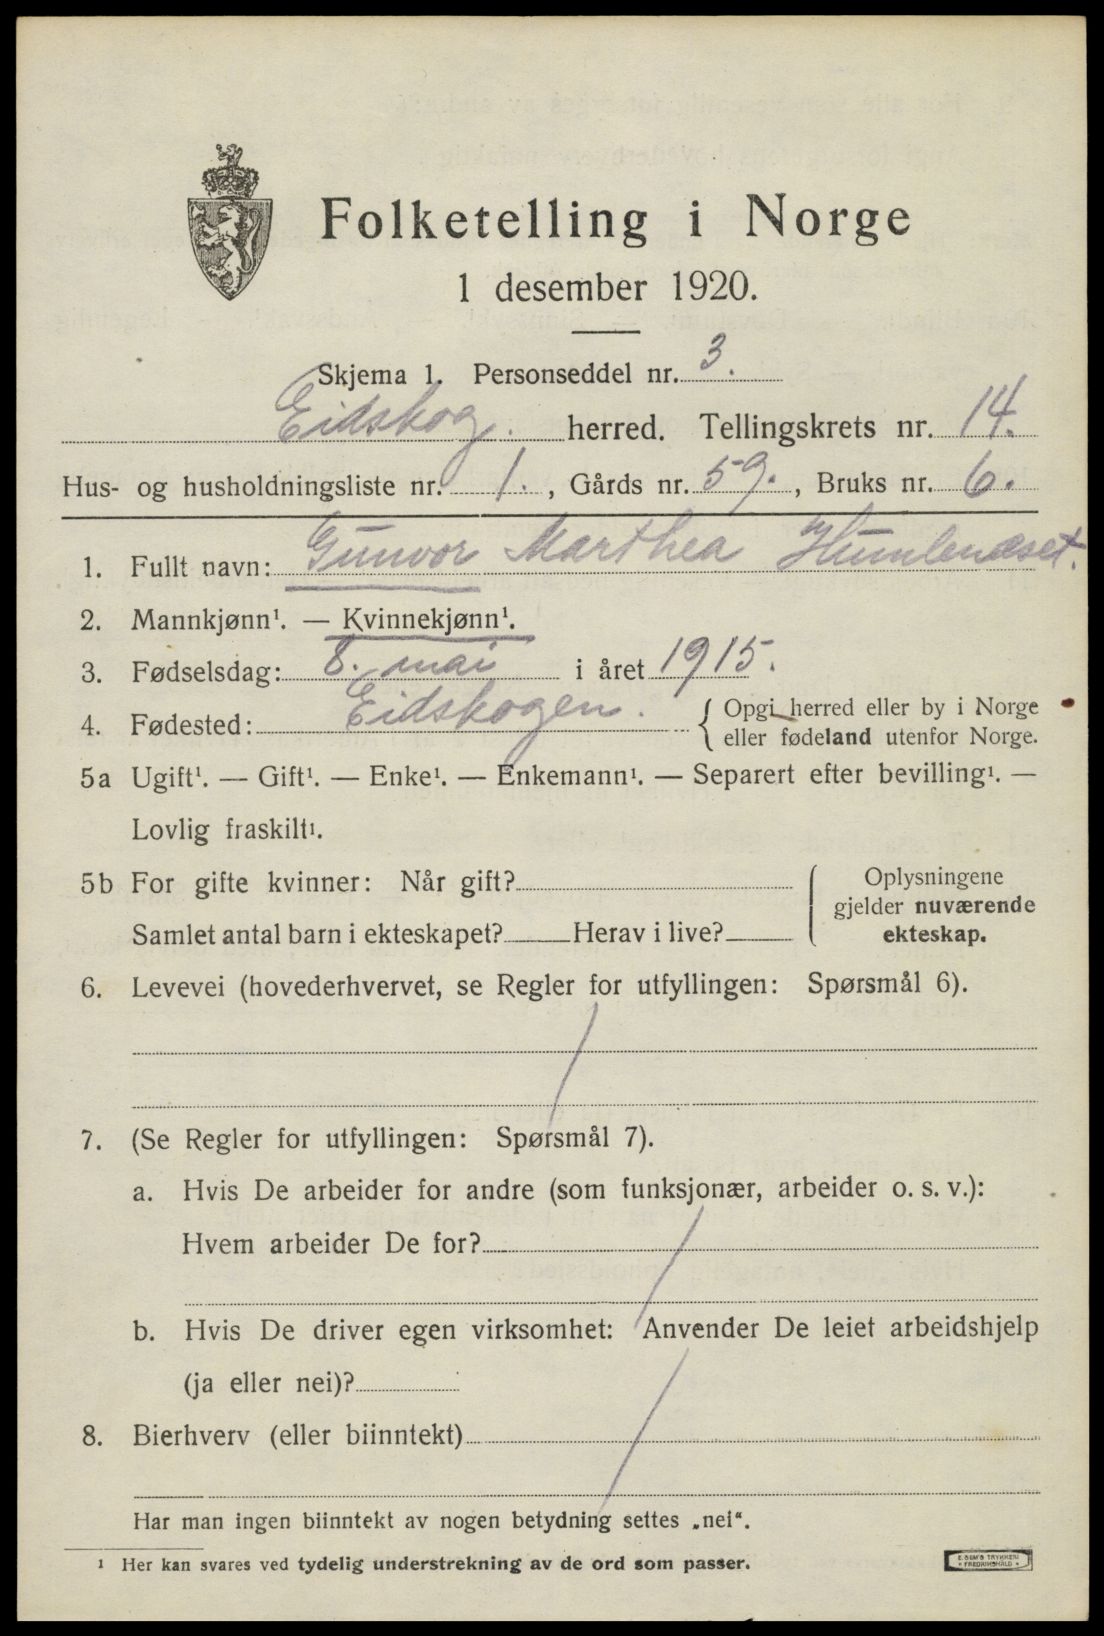 Folketelling i Norge
1 desember 1920.
Skjema 1. Personseddel nr. 3.
Eidskog. herred. Tellingskrets nr. 14.
Hus- og husholdningsliste nr. 1., Gårds nr. 59., Bruks nr. 6.
1. Fullt navn: Gunvor Marthea Humlenæset.
2. Mannkjønn¹. — Kvinnekjønn¹.
3. Fødselsdag: 8. mai i året 1915.
4. Fødested: Eidskogen. { Opgi herred eller by i Norge
eller fødeland utenfor Norge.
5a Ugift¹. — Gift¹. — Enke¹. — Enkemann¹. — Separert efter bevilling¹. —
Lovlig fraskilt¹.
5b For gifte kvinner: Når gift? { Oplysningene
gjelder nuværende
Samlet antal barn i ekteskapet? Herav i live? ekteskap.
6. Levevei (hovederhvervet, se Regler for utfyllingen: Spørsmål 6).
7. (Se Regler for utfyllingen: Spørsmål 7).
a. Hvis De arbeider for andre (som funksjonær, arbeider o. s. v.):
Hvem arbeider De for?
b. Hvis De driver egen virksomhet: Anvender De leiet arbeidshjelp
(ja eller nei)?
8. Bierhverv (eller biinntekt)
Har man ingen biinntekt av nogen betydning settes „nei“.
¹ Her kan svares ved tydelig understrekning av de ord som passer.
E. SEM'S TRYKKERI
FREDRIKSHALD